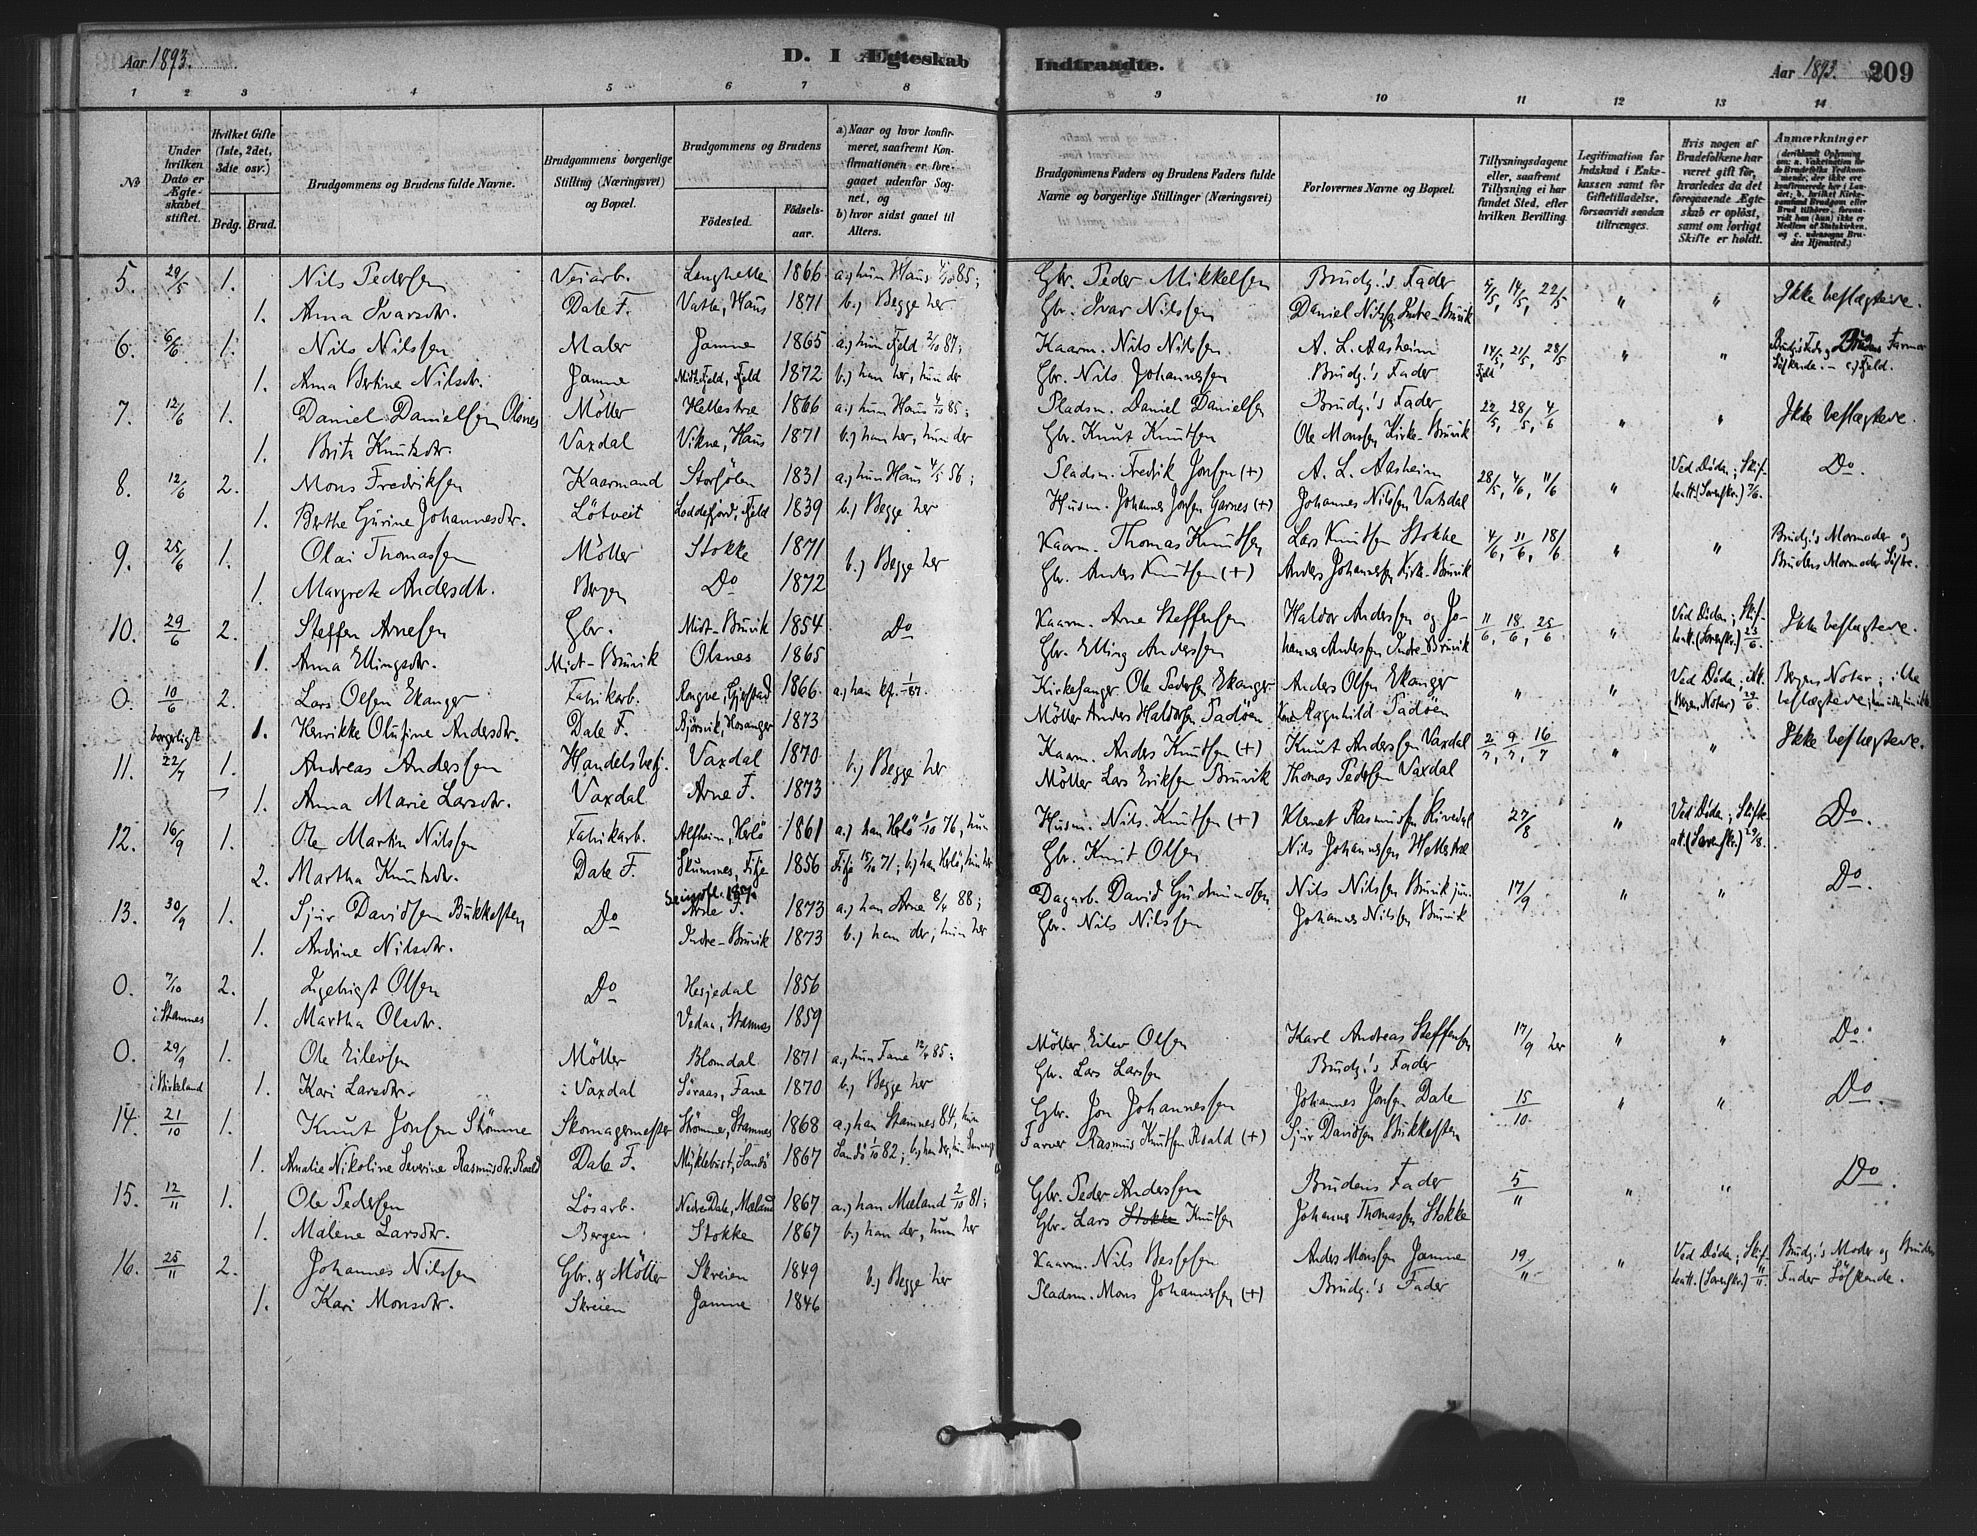 Aar 1893. D. I Ægteskab Indtraadte. Aar 1893. 209
1 2 3 4 5 6 7 8 9 10 11 12 13 14
No Under hvilken Dato er Ægteskabet stiftet. Hvilket Gifte (1ste, 2det, 3die osv.) Brdg. Brud. Brudgommens og Brudens fulde Navne. Brudgommens borgerlige Stilling (Næringsvei) og Bopæl. Brudgommens og Brudens Födested. Födsels-aar. a) Naar og hvor konfirmeret, saafremt Konfirmationen er foregaaet udenfor Sognet, og b) hvor sidst gaaet til Alters. Brudgommens Faders og Brudens Faders fulde Navne og borgerlige Stillinger (Næringsvei) Forlovernes Navne og Bopæl. Tillysningsdagene eller, saafremt Tillysning ei har fundet Sted, efter hvilken Bevilling. Legitimation for Indskud i Enkekassen samt for Giftetilladelse, forsaavidt saadan tiltrænges. Hvis nogen af Brudefolkene har været gift før, hvorledes da det foregaaende Ægteskab er opløst, samt om lovligt Skifte er holdt. Anmærkninger
5. 29/5 1. Nils Pedersen Veiarb. Lenghelle 1866 a.) hun Haus 4/10 85; Gbr. Peder Mikkelsen Brudg.'s Fader 4/5, 14/5, 22/5 " " Ikke beslægtede.
1. Anna Ivarsdtr. Dale F. Vatle, Haus 1871 b.) Begge her Gbr. Ivar Nilssen Daniel Nilssen Indre-Bruvik
6. 6/6 1. Nils Nilssen Maler Jamne 1865 a.) hun Fjeld 2/10 87; Kaarm. Nils Nilssen A. L. Aasheim 14/5, 21/5, 28/5 " "
1. Anna Bertine Nilsdtr. Jamne Fjeld 1872 b.) han her, hun der Gbr. Nils Johannessen Brudg.'s Fader Fjeld Söskende. – c.) Fjeld.
7. 12/6 1. Daniel Danielsen Olsnes Möller Hellestræ 1866 a.) hun Haus 4/10 85; Pladsm. Daniel Danielsen Brudg.'s Fader 22/5, 28/5, 4/6 " " Ikke beslægtede.
1. Brita Knutsdtr. Vaxdal Vikne, Haus 1871 b.) han her, hun der Gbr. Knut Knutsen Ole Monssen Kirke-Bruvik
8. 12/6 2. Mons Fredriksen Kaarmand Storsölen 1831 a.) hun Haus 4/5 56; Pladsm. Fredrik Jonsen (+) A. L. Aasheim 28/5, 4/6, 11/6 " Ved Döden; Skifteatt. (Sorenskr.) 7/6. Do
1. Berthe Gurine Johannesdtr. Lötveit Loddefjord, Fjeld 1839 b.) Begge her Husm. Johannes Jonsen Garnes (+) Johannes Nilssen Vaxdal
9. 25/6 1. Olai Thomassen Möller Stokke 1871 b.) Begge her Kaarm. Thomas Knutsen Lars Knutsen Stokke 4/6, 11/6, 18/6 " " Brudg.'s Mormoder og
1. Margrete Andersdtr. Bergen Do 1872 Gbr. Anders Knutsen (+) Anders Johannessen Kirke-Bruvik Brudens Mormoder Söstre.
10. 29/6 2. Steffen Arnesen Gbr. Midt-Bruvik 1854 Do Kaarm. Arne Steffensen Haldor Anderssen og Jo- 11/6, 18/6, 25/6 " Ved Döden; Skifteatt. (Sorenskr.) 25/6. Ikke beslægtede.
1. Anna Ellingsdtr. Midt-Bruvik Olsnes 1865 Gbr. Elling Anderssen hannes Anderssen Indre-Bruvik
0. 10/6 2. Lars Olsen Ekanger Fabrikarb. Gjerstad 1866 a.) han kf. Kirkesanger Ole Pedersen Ekanger Anders Olsen Ekanger " " Ved Döden (Bergens Notar) Bergens Notar; ikke
borgerligt 1. Henrikke Olufine Andersdtr. Dale F. Björsvik, Hosanger 1873 Möller Anders Haldorsen Tadöen Ragnhild Tadöen beslægtede;
11. 22/7 1. Andreas Anderssen Handelsbetj. Vaxdal 1870 b.) Begge her Kaarm. Anders Knutsen (+) Knut Anderssen Vaxdal 2/7, 9/7, 16/7 " " Ikke beslægtede.
1. Anna Marie Larsdtr. Vaxdal Arne F. 1873 Möller Lars Eriksen Bruvik Thomas Pedersen Vaxdal
12. 16/9 1. Ole Martin Nilssen Fabrikarb. Alfheim, Herlö 1861 a.) han Herlö 1/10 76, hun Husm. Nils Knutsen (+) Klemet Rasmussen Rivedal 27/8 " Ved Döden; Skifteatt. (Sorenskr.) 29/8. Do.
2. Martha Knutsdtr. Dale F. Skumsnes, Fitje 1856 Fitje 15/10 71; b.) han Herlö, hun her Gbr. Knut Olsen Nils Johannessen Hellestræ
13. 30/9 1. Sjur Davidsen Bukkesten Do Arne F. 1873 a.) han Arne 8/4 88; Dagarb. David Gudmundsen Nils Nilssen Bruvik jun. 17/9 " " Do.
1. Andrine Nilsdtr. Indre-Bruvik 1873 b.) han der; hun her Gbr. Nils Nilssen Johannes Nilssen Bruvik
0. 7/10 2. Ingebrigt Olsen Do Hesjedal 1856
i Stamnes 1. Martha Olsdtr. Vedaa, Stamnes 1859
0. 29/9 1. Ole Eilevsen Möller Blomdal 1871 a.) hun Fane 12/4 85; Möller Eilev Olsen Karl Andreas Steffensen 17/9 her " " Do.
i Birkeland 1. Kari Larsdtr. i Vaxdal Söraas, Fane 1870 b.) Begge her Gbr. Lars Larssen Brudg.'s Fader
14. 21/10 1. Knut Jonsen Stömme Skomagermester Stömme, Stamnes 1868 a.) han Stamnes 84, hun Gbr. Jon Johannessen Johannes Jonsen Dale 15/10 " " Do.
1. Amalie Nikoline Severine Rasmusdtr. Roald Dale F. Myklebust, Sandö 1867 Sandö 1/10 82; b.) han der, hun Farver Rasmus Knutsen Roald (+) Sjur Davidsen Bukkesten
15. 12/11 1. Ole Pedersen Lösarb. Nedre Dale, Mæland 1867 a.) han Mæland 2/10 81; Gbr. Peder Anderssen Brudens Fader 5/11 " " Do.
1. Malene Larsdtr. Bergen Stokke 1867 b.) han der, hun her Gbr. Lars Stokke Knutsen Johannes Thomassen Stokke
16. 25/11 2. Johannes Nilssen Gbr. & Möller Skreien 1849 b.) Begge her Kaarm. Nils Bessesen Anders Monssen Jamne 19/11 " Ved Döden; Skifteatt. (Sorenskr.) 11/11. Brudg.'s Moder og Brudens
1. Kari Monsdtr. Skreien Jamne 1846 Pladsm. Mons Johannessen (+) Brudg.'s Fader Fader Söskende.